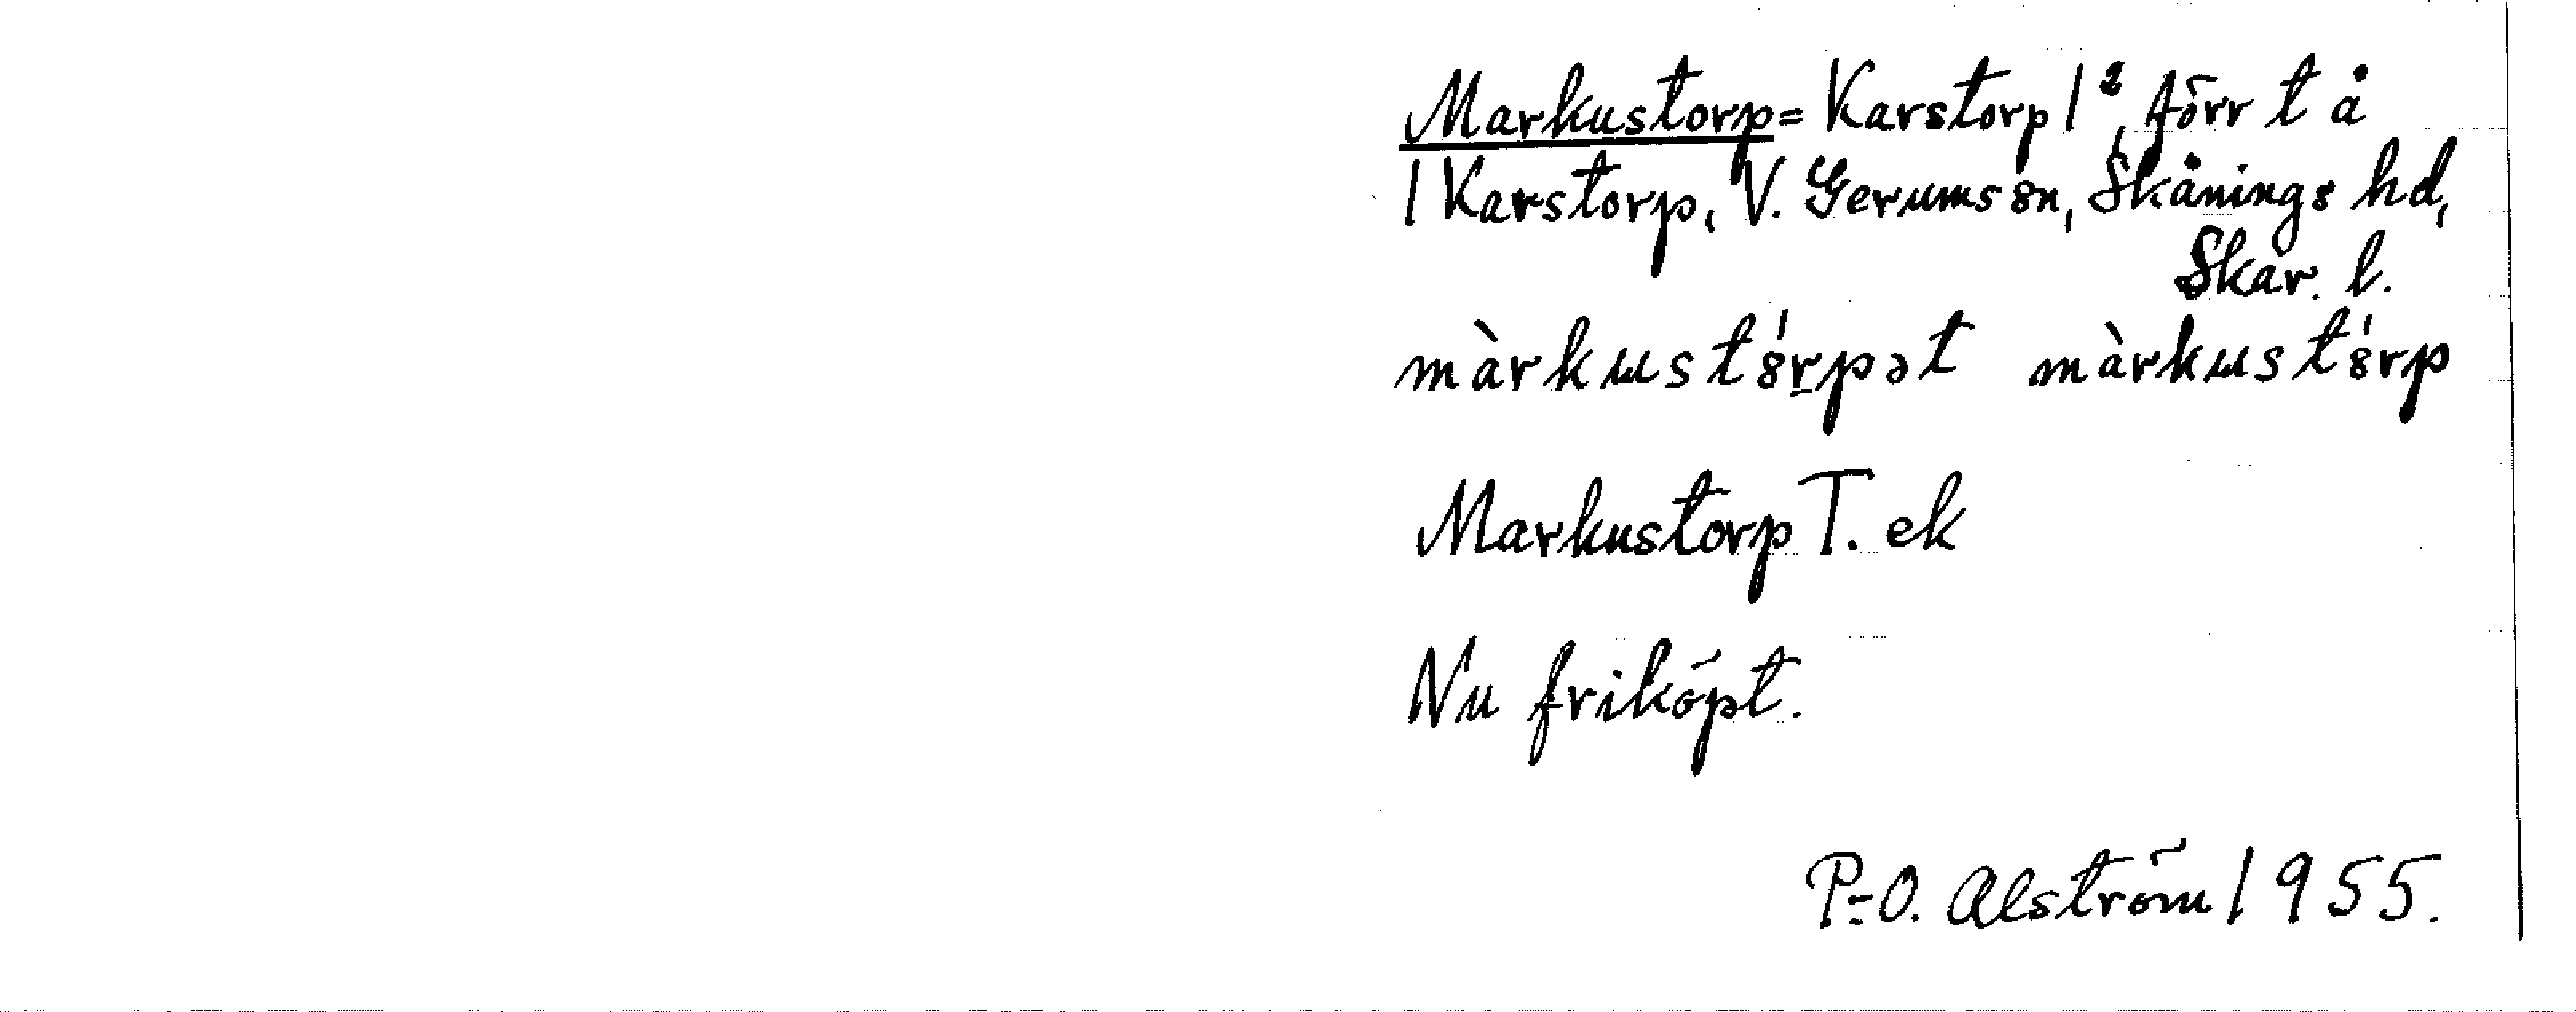 Markustorp = Karstorp 1², förr t å
1 Karstorp, V. Gerums sn, Skånings hd,
Skar. l.
màrkustǿrpət màrkustǿrp
Markustorp T. ek
Nu friköpt.
P-O. Alström 1955.